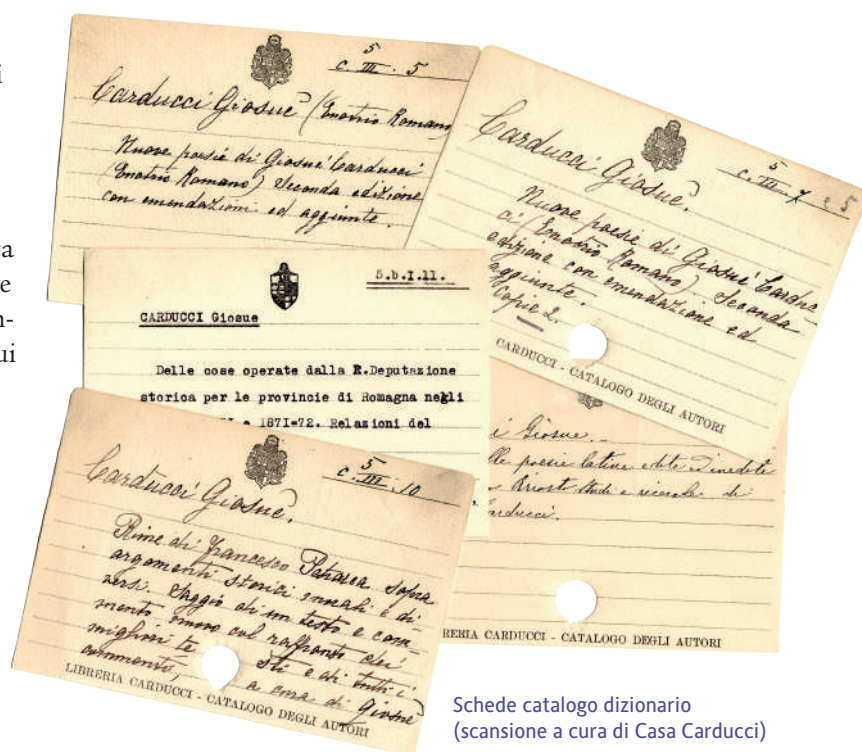 i
ca
e
n-
ui
5
c. III. 5
Carducci Giosuè (Enotrio Romano
Nuove poesie di Giosuè Carducci
(Enotrio Romano) Seconda edizione
con emendazioni ed aggiunte.
5
c. III. 7 e 5
Carducci Giosuè.
Nuove poesie di Giosuè Carduc-
ci (Enotrio Romano) Seconda
edizione con emendazione ed
aggiunte.
Copie 2.
CARDUCCI - CATALOGO DEGLI AUTORI
5.b.I.11.
CARDUCCI Giosue
Delle cose operate dalla R.Deputazione
storica per le provincie di Romagna negli
e 1871-72. Relazioni del
i Giosuè.
lle poesie latine edite ed inedite
Ariost studi e ricerche di
arducci.
RERIA CARDUCCI - CATALOGO DEGLI AUTORI
5
c. III. 10
Carducci Giosuè.
Rime di Francesco Petrarca sopra
argomenti storici morali e di-
versi. Saggio di un testo e com-
mento nuovo col raffronto dei
migliori te sti e di tutti i
commenti, a cura di Giosuè
LIBRERIA CARDUCCI - CATALOGO DEGLI AUTORI
Schede catalogo dizionario
(scansione a cura di Casa Carducci)